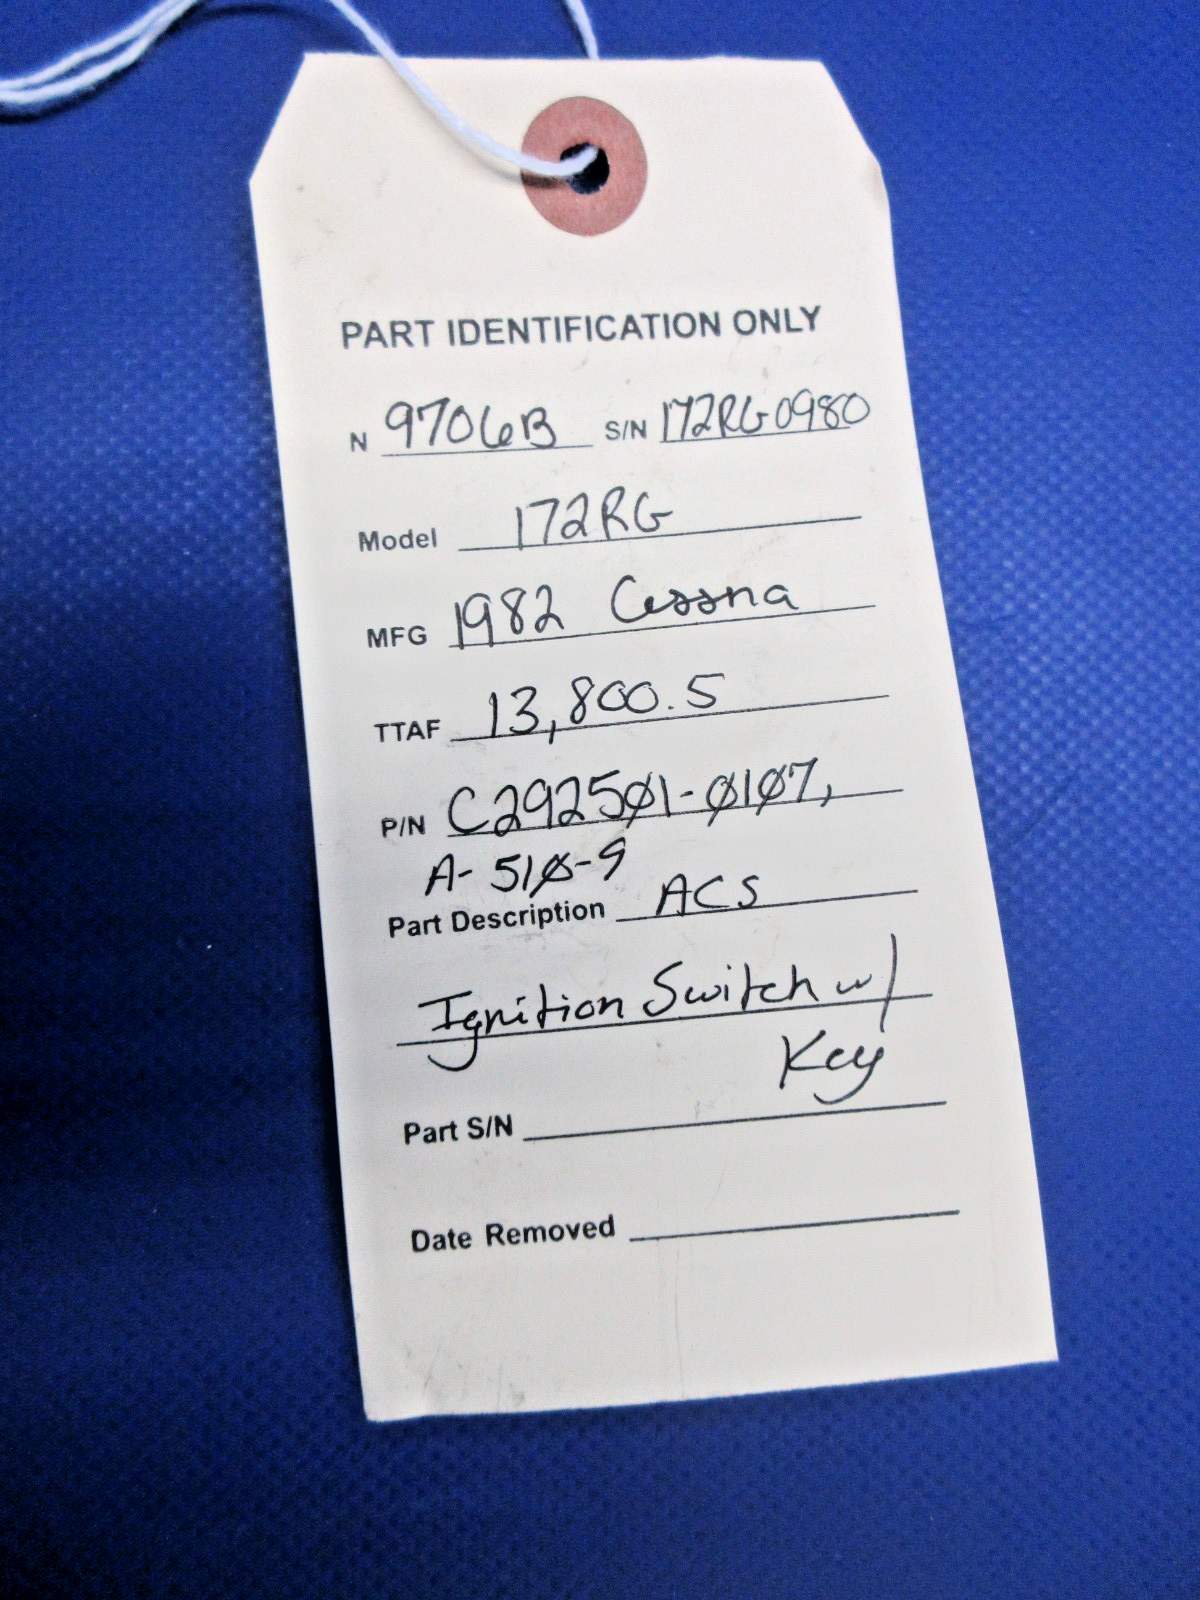 PART IDENTIFICATION ONLY
N 9706B S/N 172RG0980
Model 172RG
MFG 1982 Cessna
TTAF 13,800.5
P/N C2925Ø1-Ø1Ø7,
A-51Ø-9
Part Description ACS
Ignition Switch w/
Key
Part S/N
Date Removed